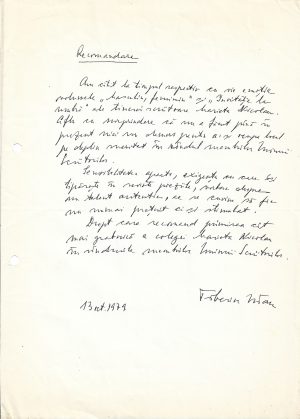 Recomandare
Am citit la timpul respectiv cu vie emoție
volumele "Masculin, feminin" și "Invitație la
" ale tinerei scriitoare Marieta Nicolau.
Aflu cu surprindere că nu a fost până în
prezent nici un demers pentru a-și ocupa locul
pe deplin meritat în rândul membrilor Uniunii
Scriitorilor.
Sensibilitatea aparte, exigența cu care își
tipărește în reviste poeziile, sunt
un talent autentic, ce se cuvine să fie
nu numai prețuit ci și stimulat.
Drept care recomand primirea cât
mai grabnică a colegei Marieta Nicolau
în rândurile membrilor Uniunii Scriitorilor.
13 oct. 1979
Tiberiu Utan